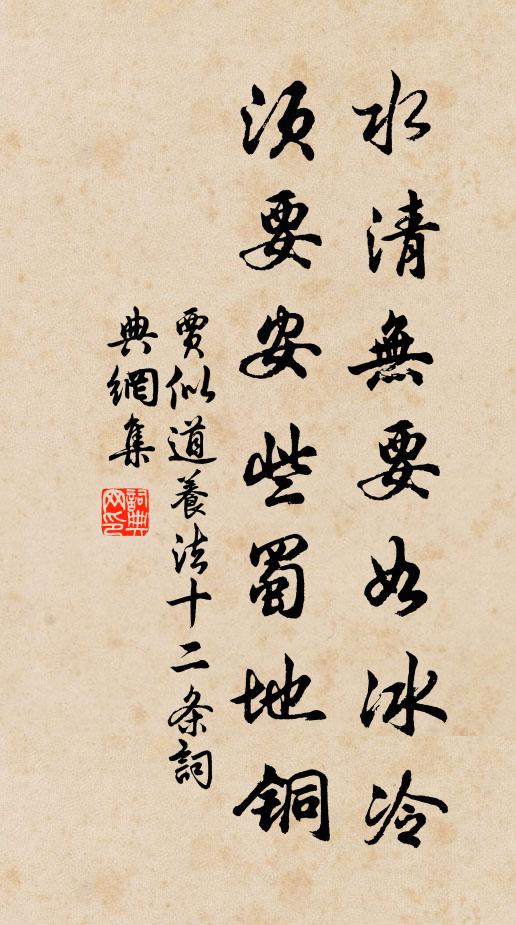 水清無要如冰冷
須要安些蜀地銅
賈似道養法十二条詞
典網集
詞典网印